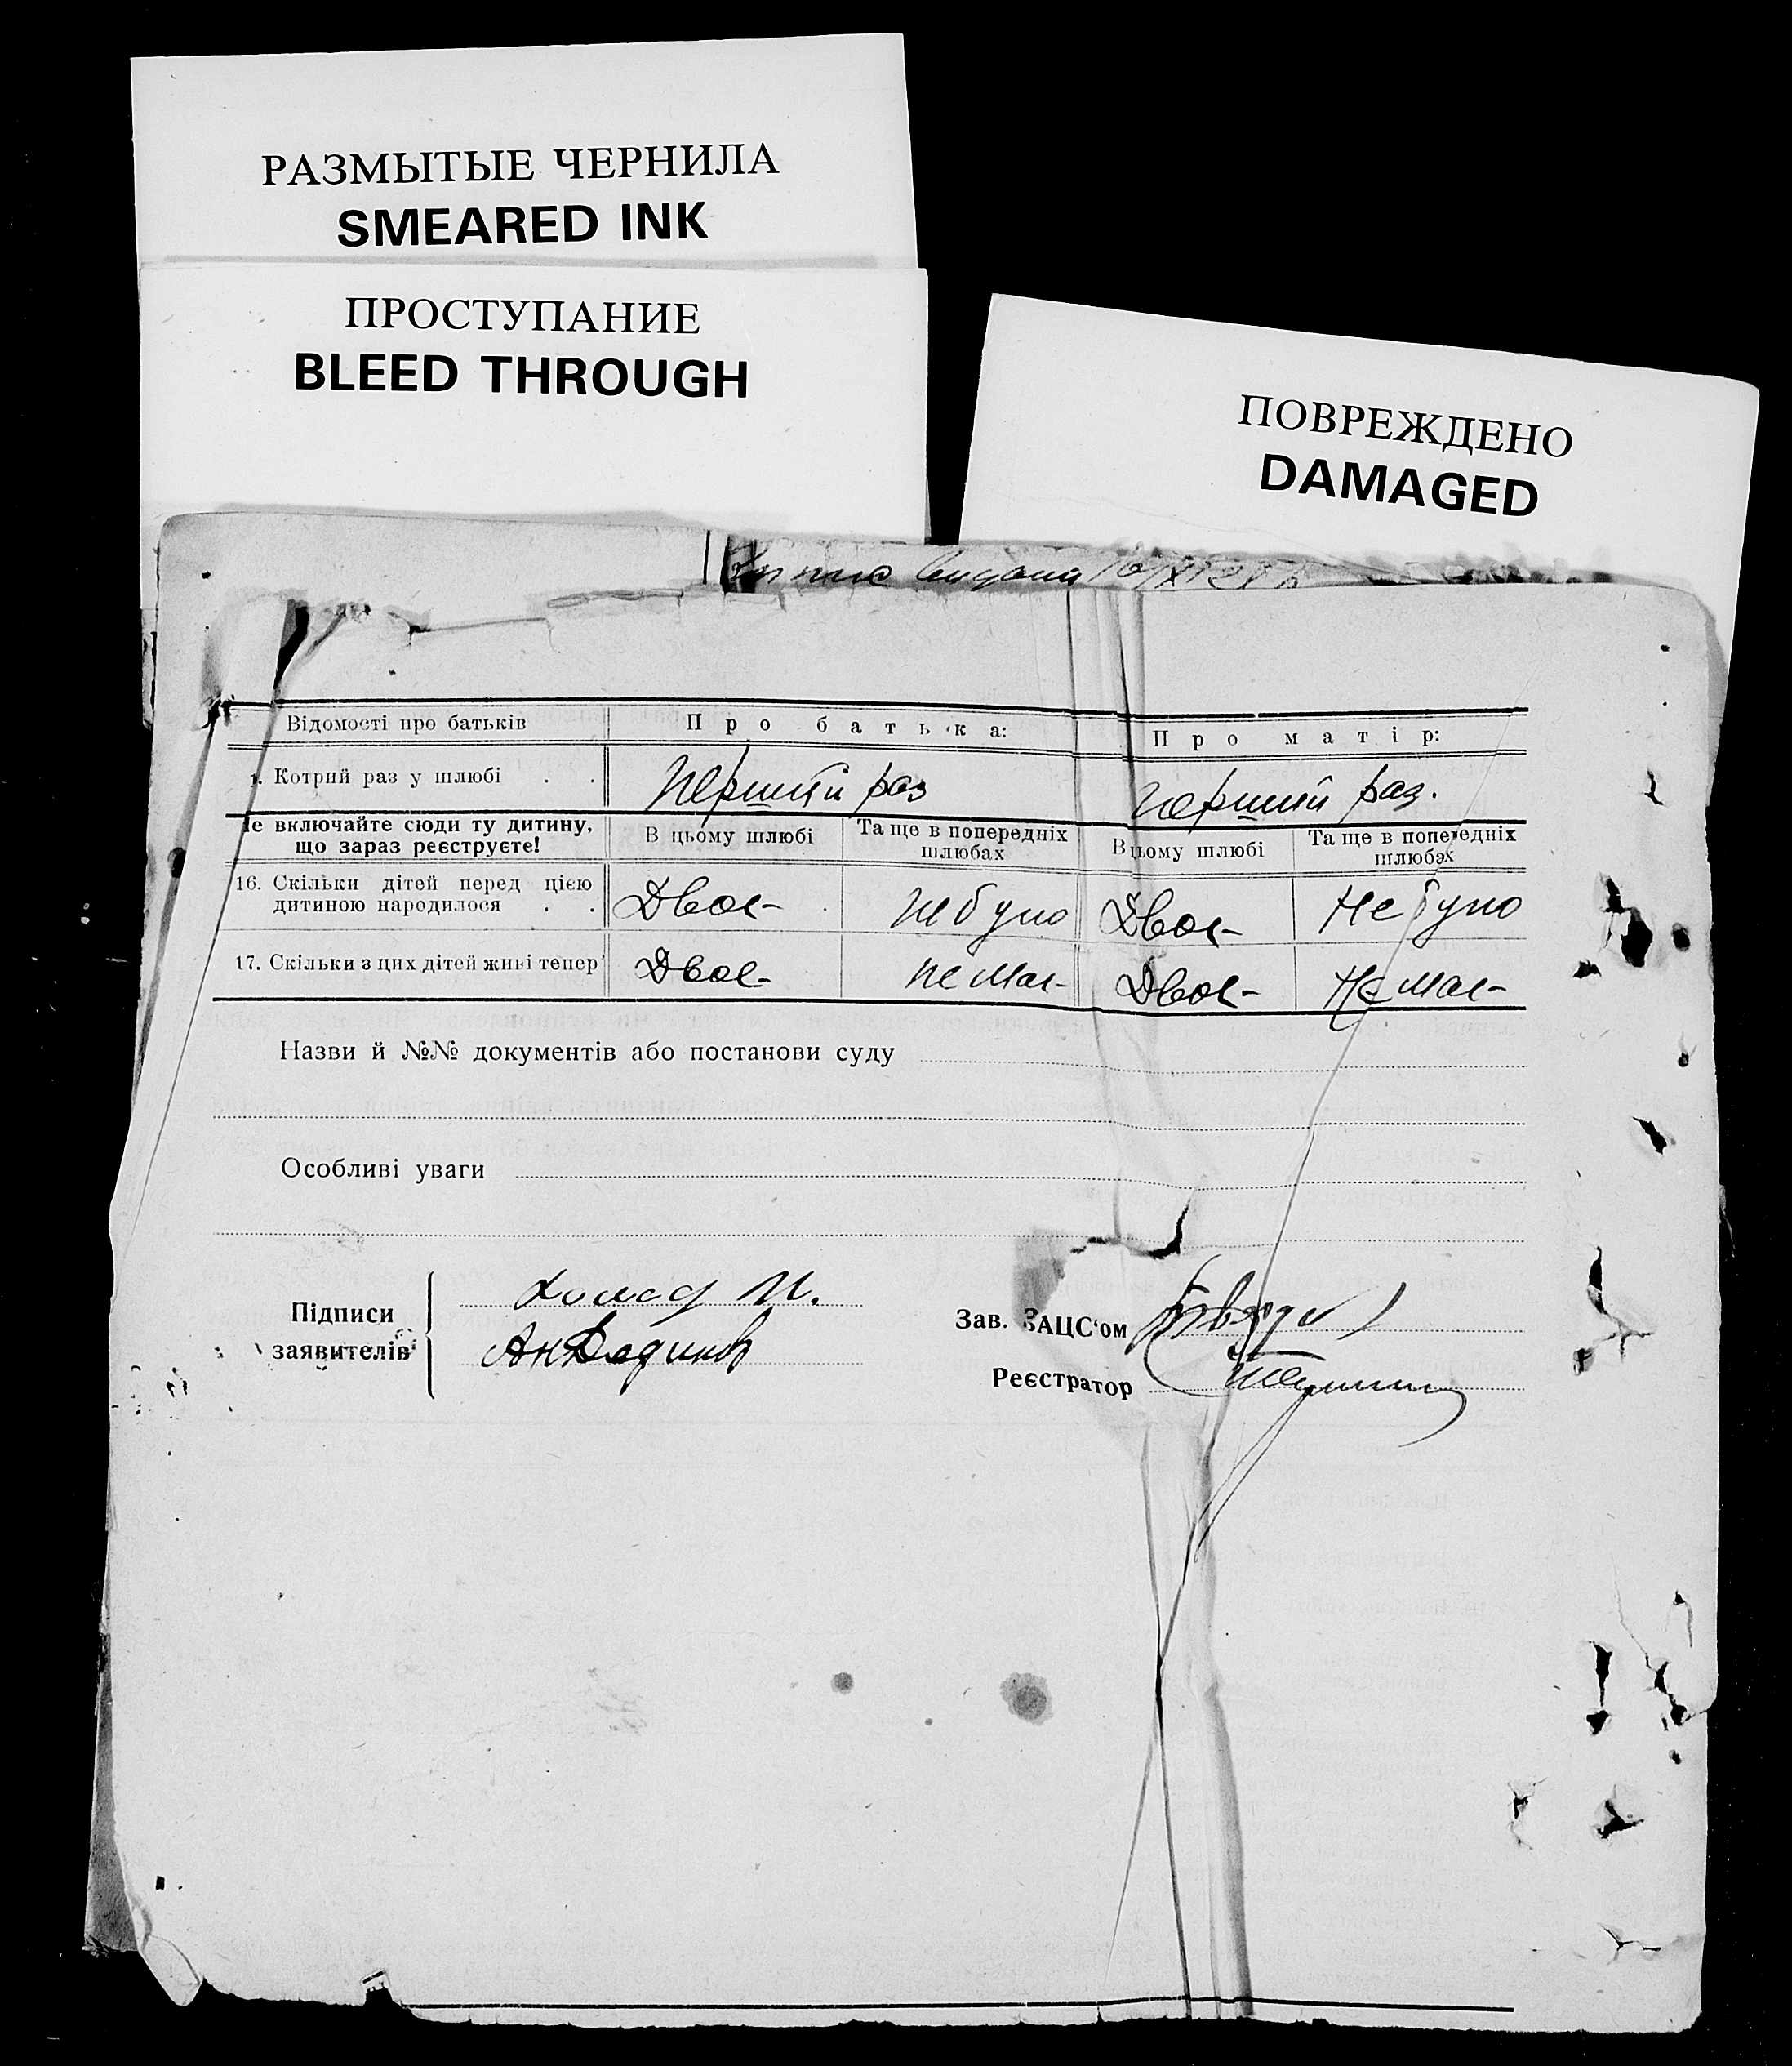 РАЗМЫТЫЕ ЧЕРНИЛА
SMEARED INK
ПРОСТУПАНИЕ
BLEED THROUGH
ПОВРЕЖДЕНО
DAMAGED
Відомості про батьків Про батька: Про матір:
Котрий раз у шлюбі . . Перший раз Перший раз.
е включайте сюди ту дитину, що зараз реєструєте! В цьому шлюбі Та ще в попередніх шлюбах В цьому шлюбі Та ще в попередніх шлюбах
16. Скільки дітей перед цією дитиною народилося . . Двоє Не було Двоє Не було
17. Скільки з цих дітей живі тепер Двоє Не має Двоє Не має
Назви й №№ документів або постанови суду
Особливі уваги
Підписи заявителів
Зав. ЗАЦС'ом
Реєстратор